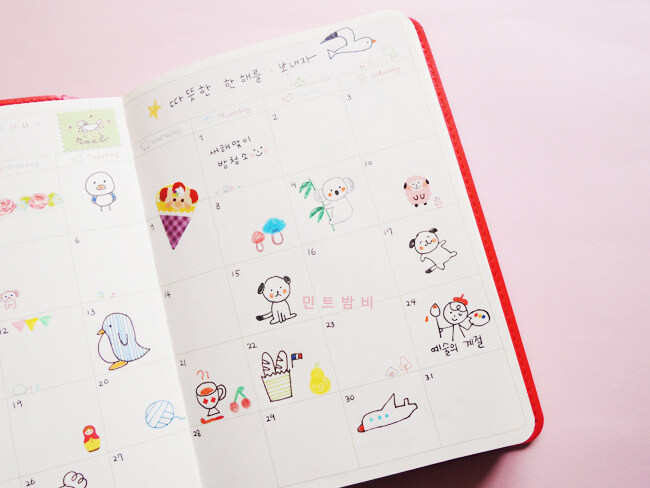 따뜻한 한 해를 보내자
rock
Thursday
Saturday
1
2
3
새해맞이
방청소
6
7
8
9
10
12
13
14
15
16
17
민트밤비
19
20
21
22
23
24
예술의 계절
26
27
28
29
30
31